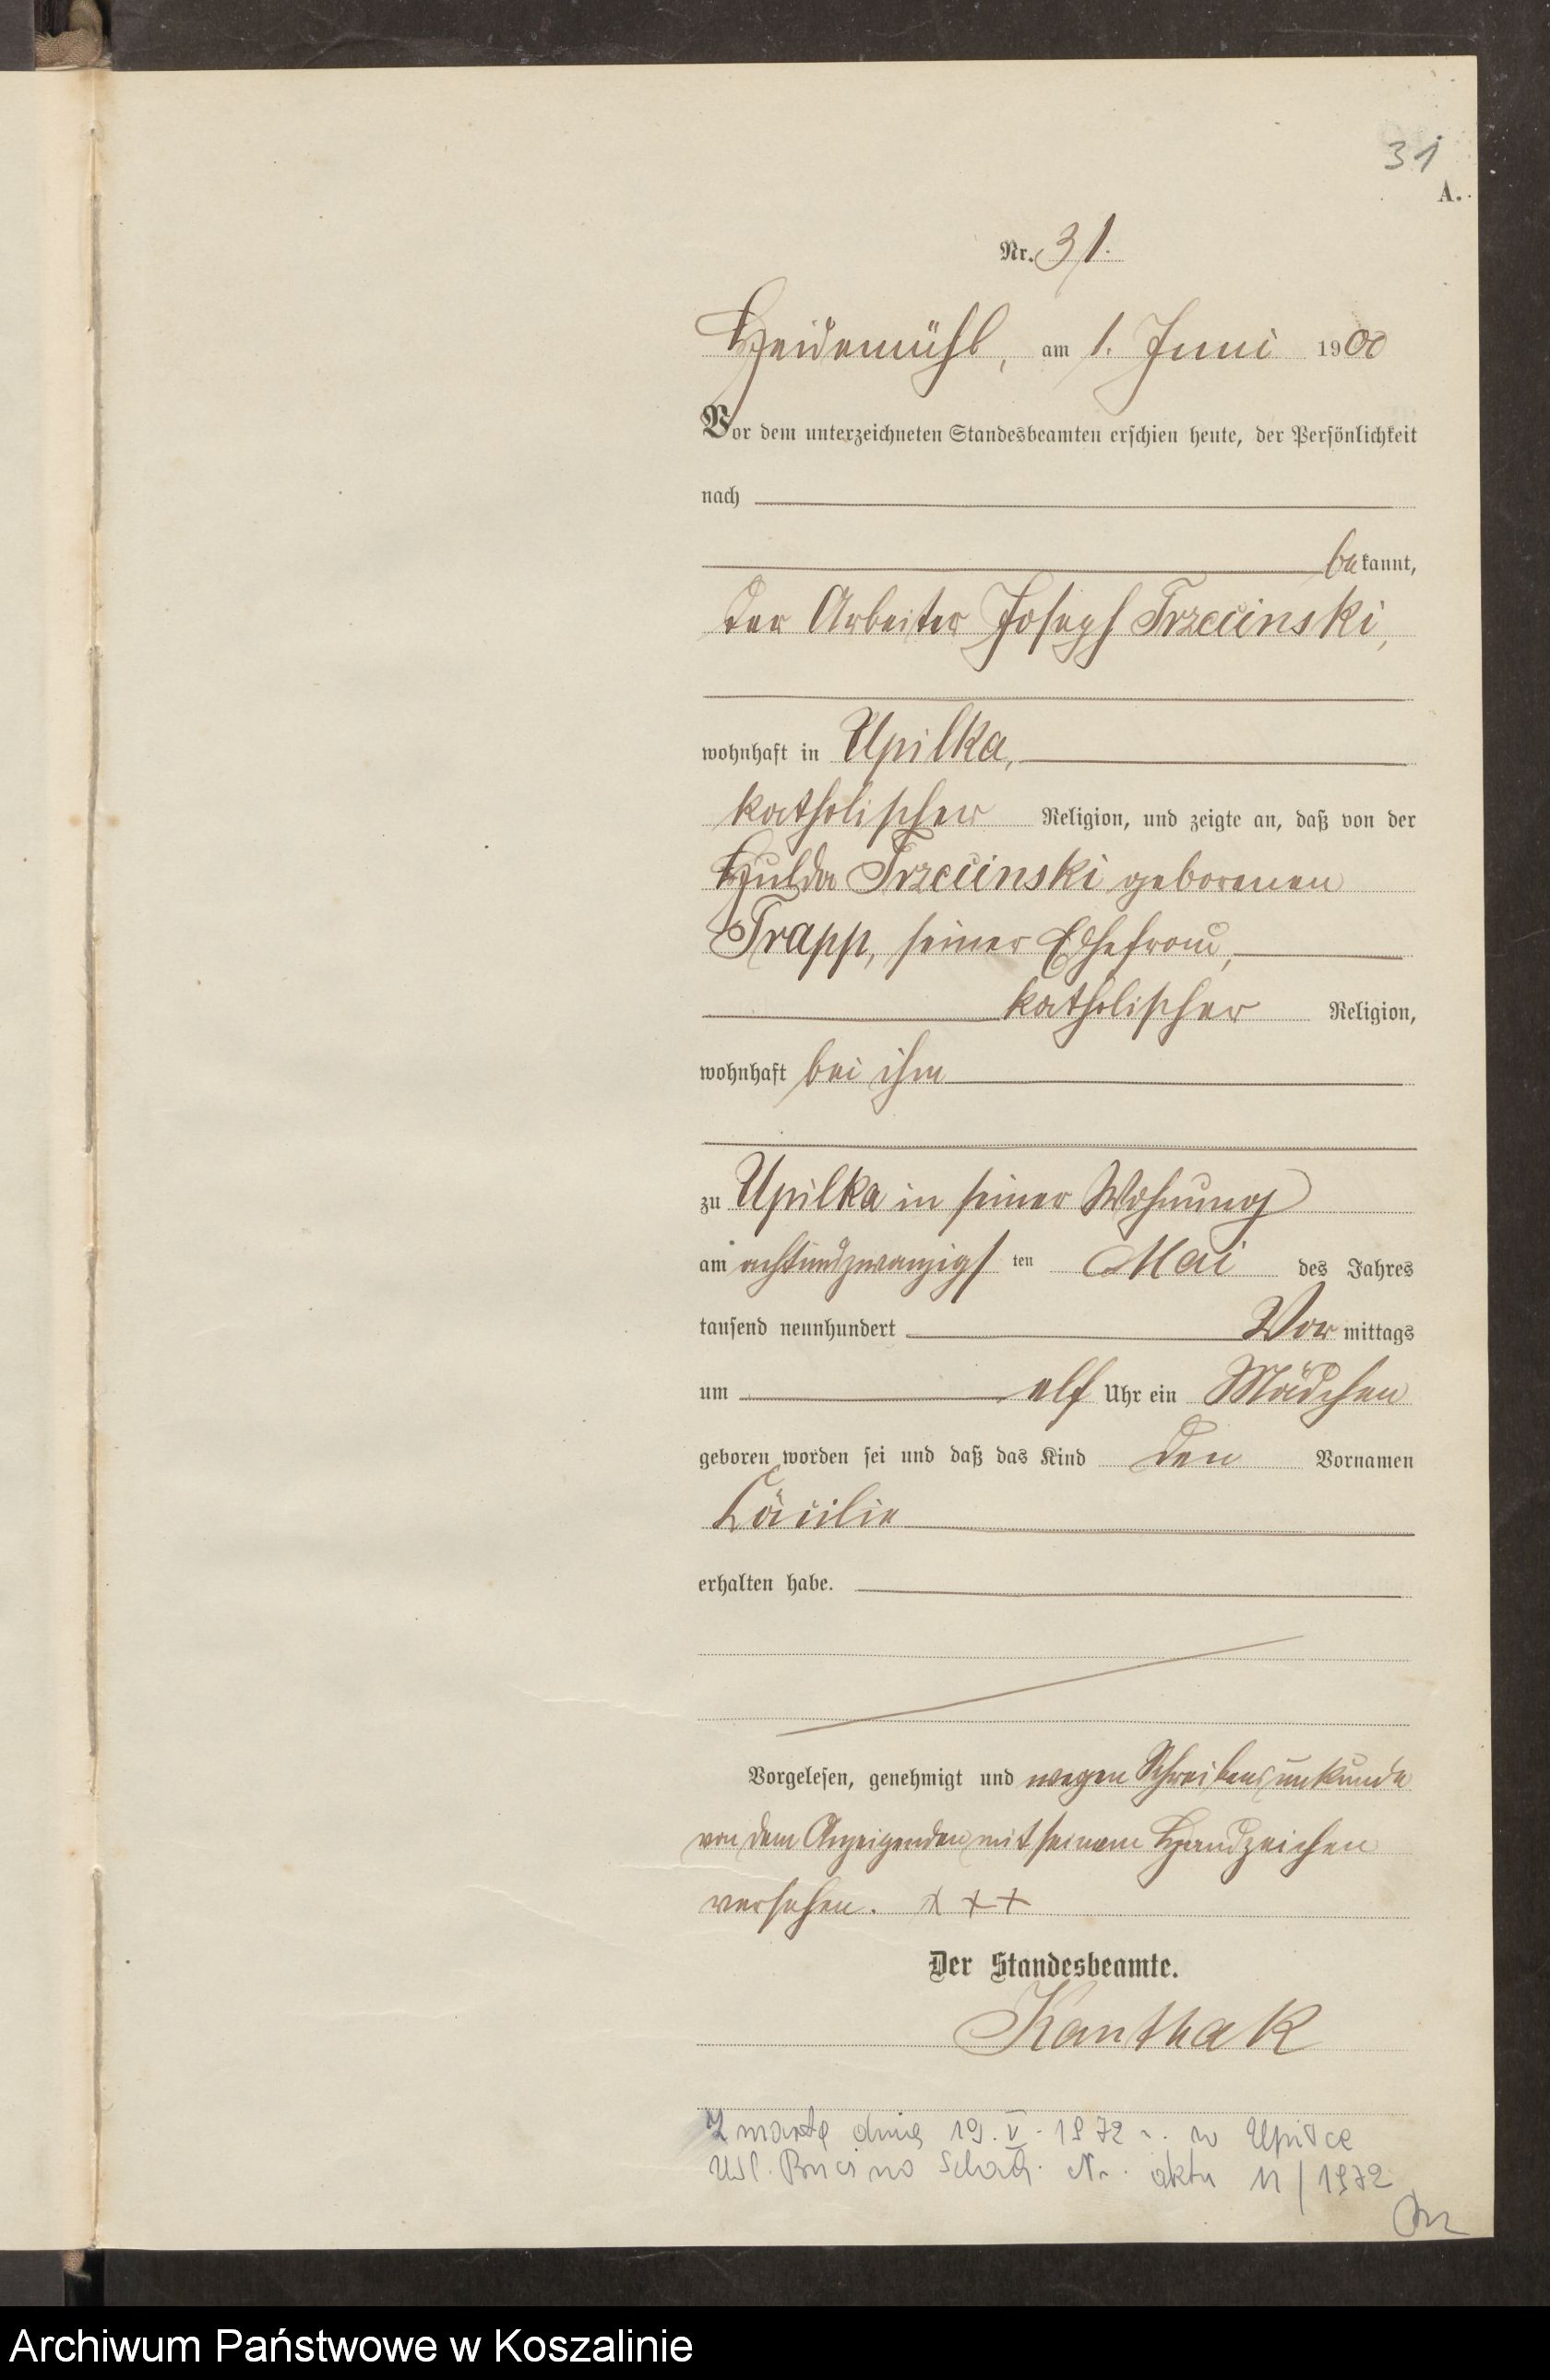 31
A.
Nr. 31.
Heidemühl, am 1. Juni 1900
Vor dem unterzeichneten Standesbeamten erschien heute, der Persönlichkeit
nach
bekannt,
der Arbeiter Joseph Trzcinski,
wohnhaft in Upilka,
katholischer Religion, und zeigte an, daß von der
Hulda Trzcinski geborenen
Trapp, seiner Ehefrau,
katholischer Religion,
wohnhaft bei ihm
zu Upilka in seiner Wohnung
am achtundzwanzigsten Mai des Jahres
tausend neunhundert Vormittags
um elf Uhr ein Mädchen
geboren worden sei und daß das Kind den Vornamen
Cäcilie
erhalten habe.
Vorgelesen, genehmigt und wegen Schreibensunkunde
von dem Anzeigenden mit seinem Handzeichen
versehen. xxx
Der Standesbeamte.
Kanthak
Zmarła dnia 19.V.1972 r. w Upiłce
USC. Nr. aktu 11/1972
Archiwum Państwowe w Koszalinie